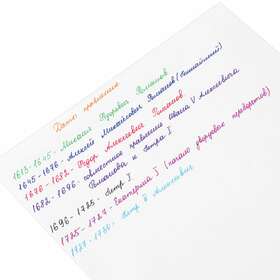 Даты правления
1613-1645 - Михаил Фёдорович Романов
1645-1676 - Алексей Михайлович Романов (Тишайший)
1676-1682 - Фёдор Алексеевич Романов
1682-1696 - совместное правление Ивана V Алексеевича
Романова и Петра I
1696-1725 - Пётр I
1725-1727 - Екатерина I (начало дворцовых переворотов)
1727-1730 - Пётр II Алексеевич